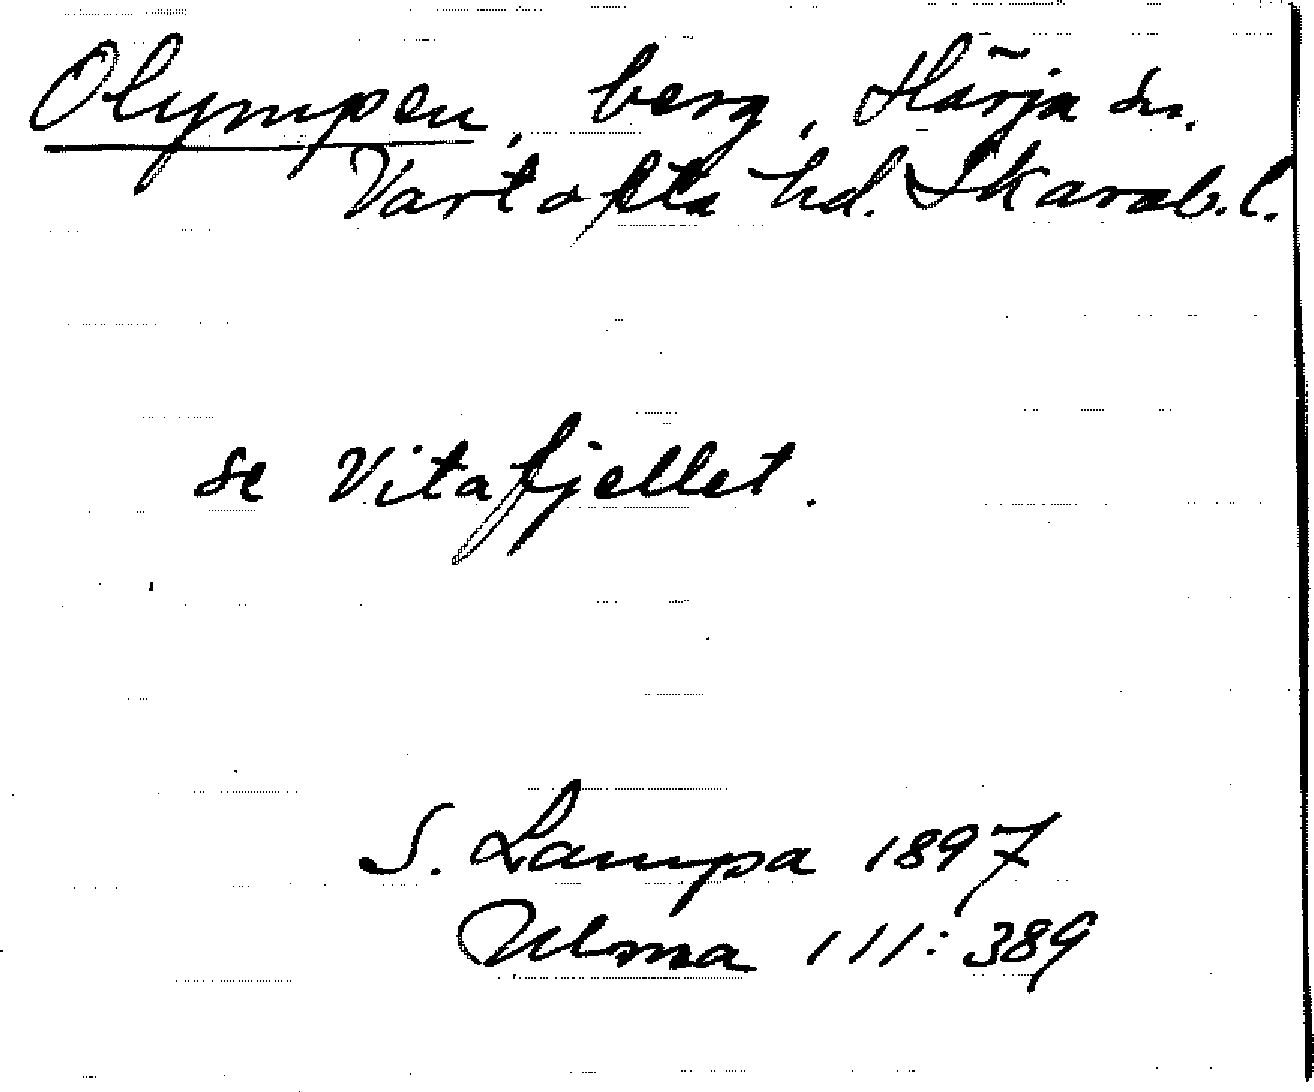 Olympen, berg, Härja sn.
Vartofta hd. Skarab.l.
se Vitafjellet.
S. Lampa 1897
Ulma 111:389